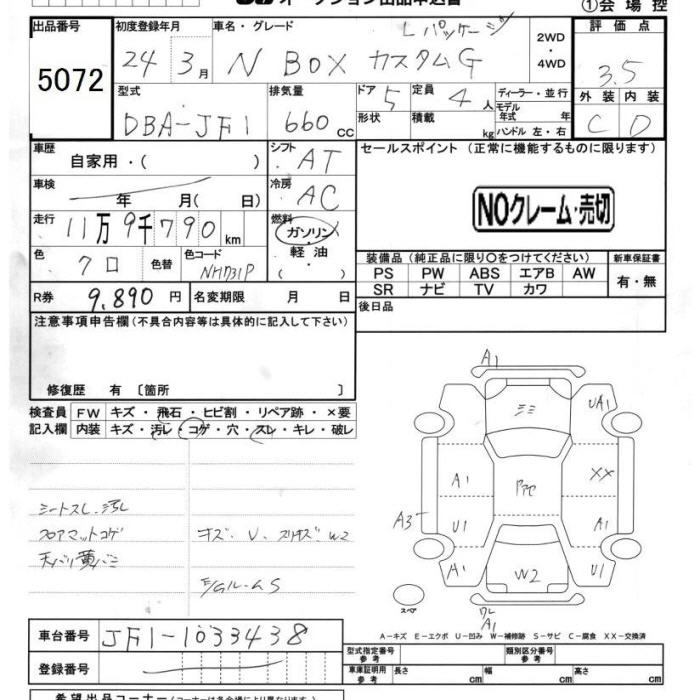 オークション出品申込書
①会場控
出品番号 初度登録年月 車名・グレード Lパッケージ 2WD・4WD 評価点
5072 24 3月 N BOX カスタムG 3.5
型式 排気量 ドア 5 定員 4人 ディーラー・並行 外装 内装
DBA-JF1 660cc 形状 積載 kg モデル年式 年 ハンドル 左・右 C D
車歴 自家用・( ) シフト AT セールスポイント (正常に機能するものに限ります)
車検 年 月( 日) 冷房 AC
NOクレーム・売切
走行 11万9千790km 燃料 ガソリン・軽油・( )
色 クロ 色替 色コード NH731P
装備品 (純正品に限り○をつけてください) 新車保証書
PS PW ABS エアB AW 有・無
SR ナビ TV カワ
R券 9,890円 名変期限 月 日 後日品
注意事項申告欄(不具合内容等は具体的に記入して下さい)
修復歴 有〔箇所 〕
検査員 FW キズ・飛石・ヒビ割・リペア跡・×要
記入欄 内装 キズ・汚レ・コゲ・穴・スレ・キレ・破レ
シートスレ・汚レ
フロアマットコゲ キズ・U・スリキズ W2
天バリ黄バミ
E/GルームS
A1
ミミ UA1
A1 XX
A3 U1 A1
A1 W2 U1
スペア
ワレ
A1
A-キズ E-エクボ U-凹み W-補修跡 S-サビ C-腐食 XX-交換済
車台番号 JF1-1033438
型式指定番号 参考 類別区分番号 参考
登録番号 車庫証明用 参考 長さ cm 幅 cm 高さ cm
希望出品コーナー